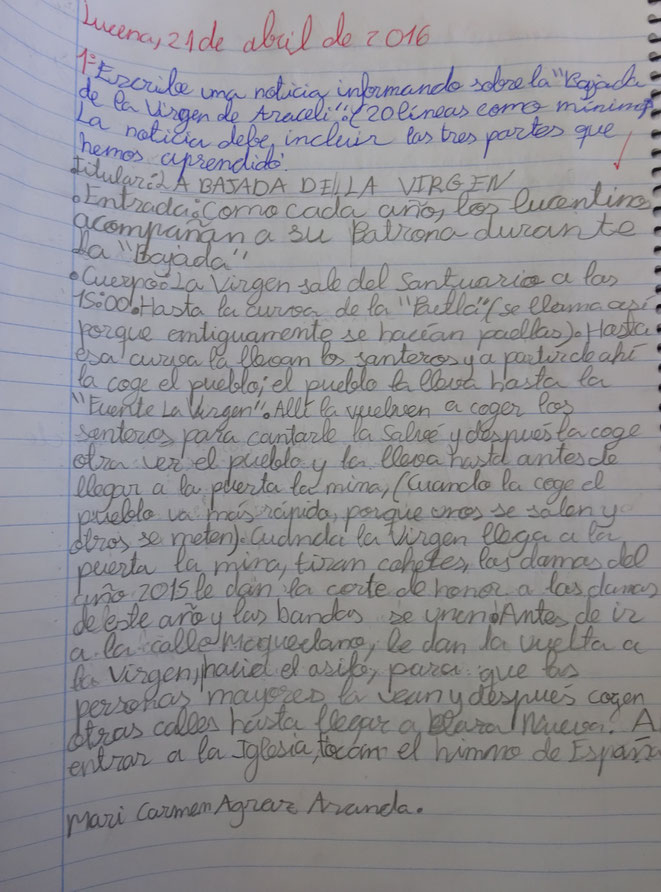 Lucena, 21 de abril de 2016
1º Escribe una noticia informando sobre la "Bajada
de la Virgen de Araceli". (20 líneas como mínimo)
La noticia debe incluir las tres partes que
hemos aprendido.
Titular: LA BAJADA DE LA VIRGEN
• Entrada: Como cada año, los lucentinos
acompañan a su Patrona durante
La "Bajada"
• Cuerpo: La Virgen sale del Santuario a las
15:00. Hasta la curva de la (se llama así
porque antiguamente se hacían paellas). Hasta
esa curva la llevan los santeros y a partir de ahí
la coge el pueblo; el pueblo la lleva hasta la
"Fuente La Virgen". Allí la vuelven a coger los
santeros para cantarle la Salve y después la coge
otra vez el pueblo y la lleva hasta antes de
llegar a la puerta la mina, (Cuando la coge el
pueblo va más rápida, porque unos se salen y
otros se meten). Cuando la Virgen llega a la
puerta la mina, tiran cohetes, las damas del
año 2015 le dan la corte de honor a las damas
de este año y las bandas se unen. Antes de ir
a la calle Maquedano, le dan la vuelta a
la Virgen, hacid el asilo, para que las
personas mayores la vean y después cogen
otras calles hasta llegar a Plaza Nueva. Al
entrar a la Iglesia, tocan el himno de España
Mari Carmen Aranda.